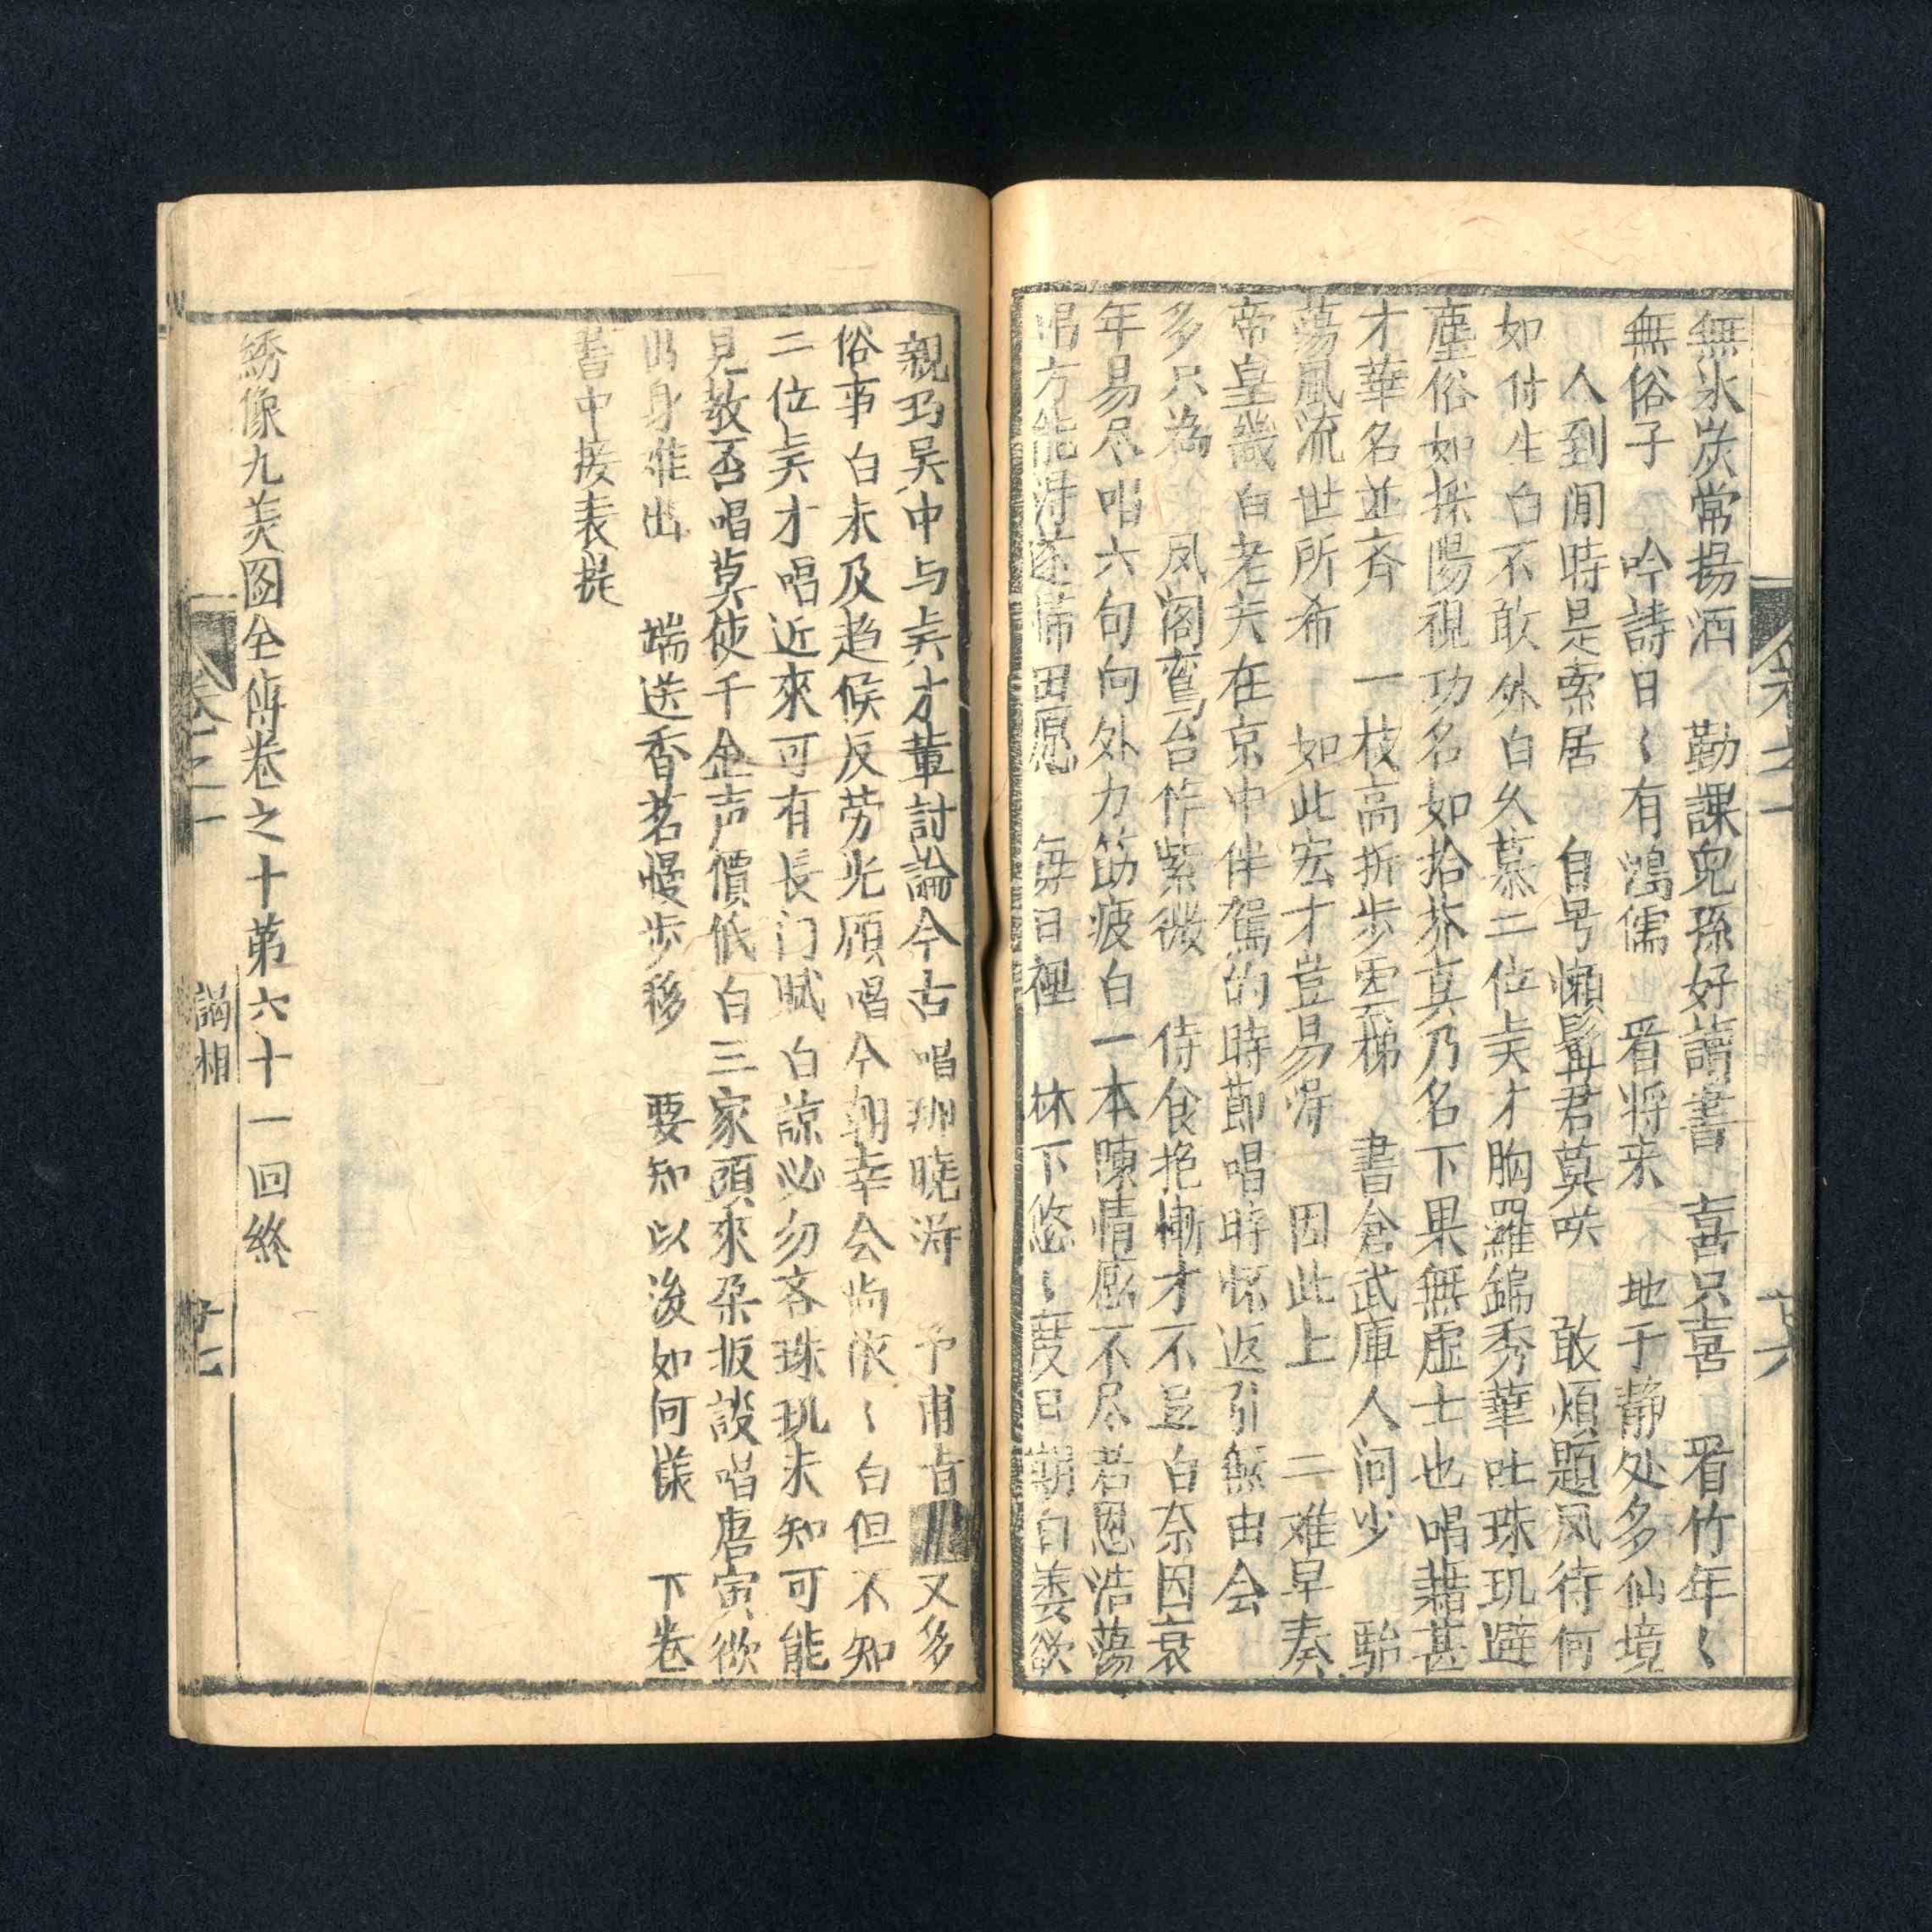 無氷炭常揚酒　勤課兒孫好讀書　喜只喜　看竹年〻
無俗子　吟詩日〻有鴻儒　看将来　地于静处多仙境
人到閒時是索居　自号懶髯君莫咲　敢煩題凤待何
如付生白不敢外白久慕二位美才胸羅錦秀華吐珠玑避
塵俗如探陽視功名如拾芥真乃名下果無虚士也唱藉甚
才華名並斉　一枝高折步雲梯　書倉武庫人间少　駘
蕩風流世所希　如此宏才豈易淂　因此上　二难早奏
帝皇畿白老夫在京中伴駕的時節唱時怀返引無由会
多只為　凤阁鸞台作紫微　侍食抱慚才不逗白奈因衰
年易尽唱六句向外力筋疲白一本陳情感不尽君恩浩蕩
唱方能淂遂歸田愿　每日裡　林下悠〻度日期白萎欲
親巧吴中与美才輩討論今古唱聊曉淂　予甫旨　又多
俗事白未及趋候反劳光顾唱今朝幸会尚依〻白但不知
二位美才唱近來可有長门賦白諒必勿吝珠玑未知可能
見教否唱莫使千金声價低白三家頭來朶扳談唱唐寅欲
身难出　端送香茗慢步移　要知以後如何樣　下卷
書中接表提
綉像九美图全傳卷之十第六十一回終
卷之十
謁相
廿七
卷之十
廿六